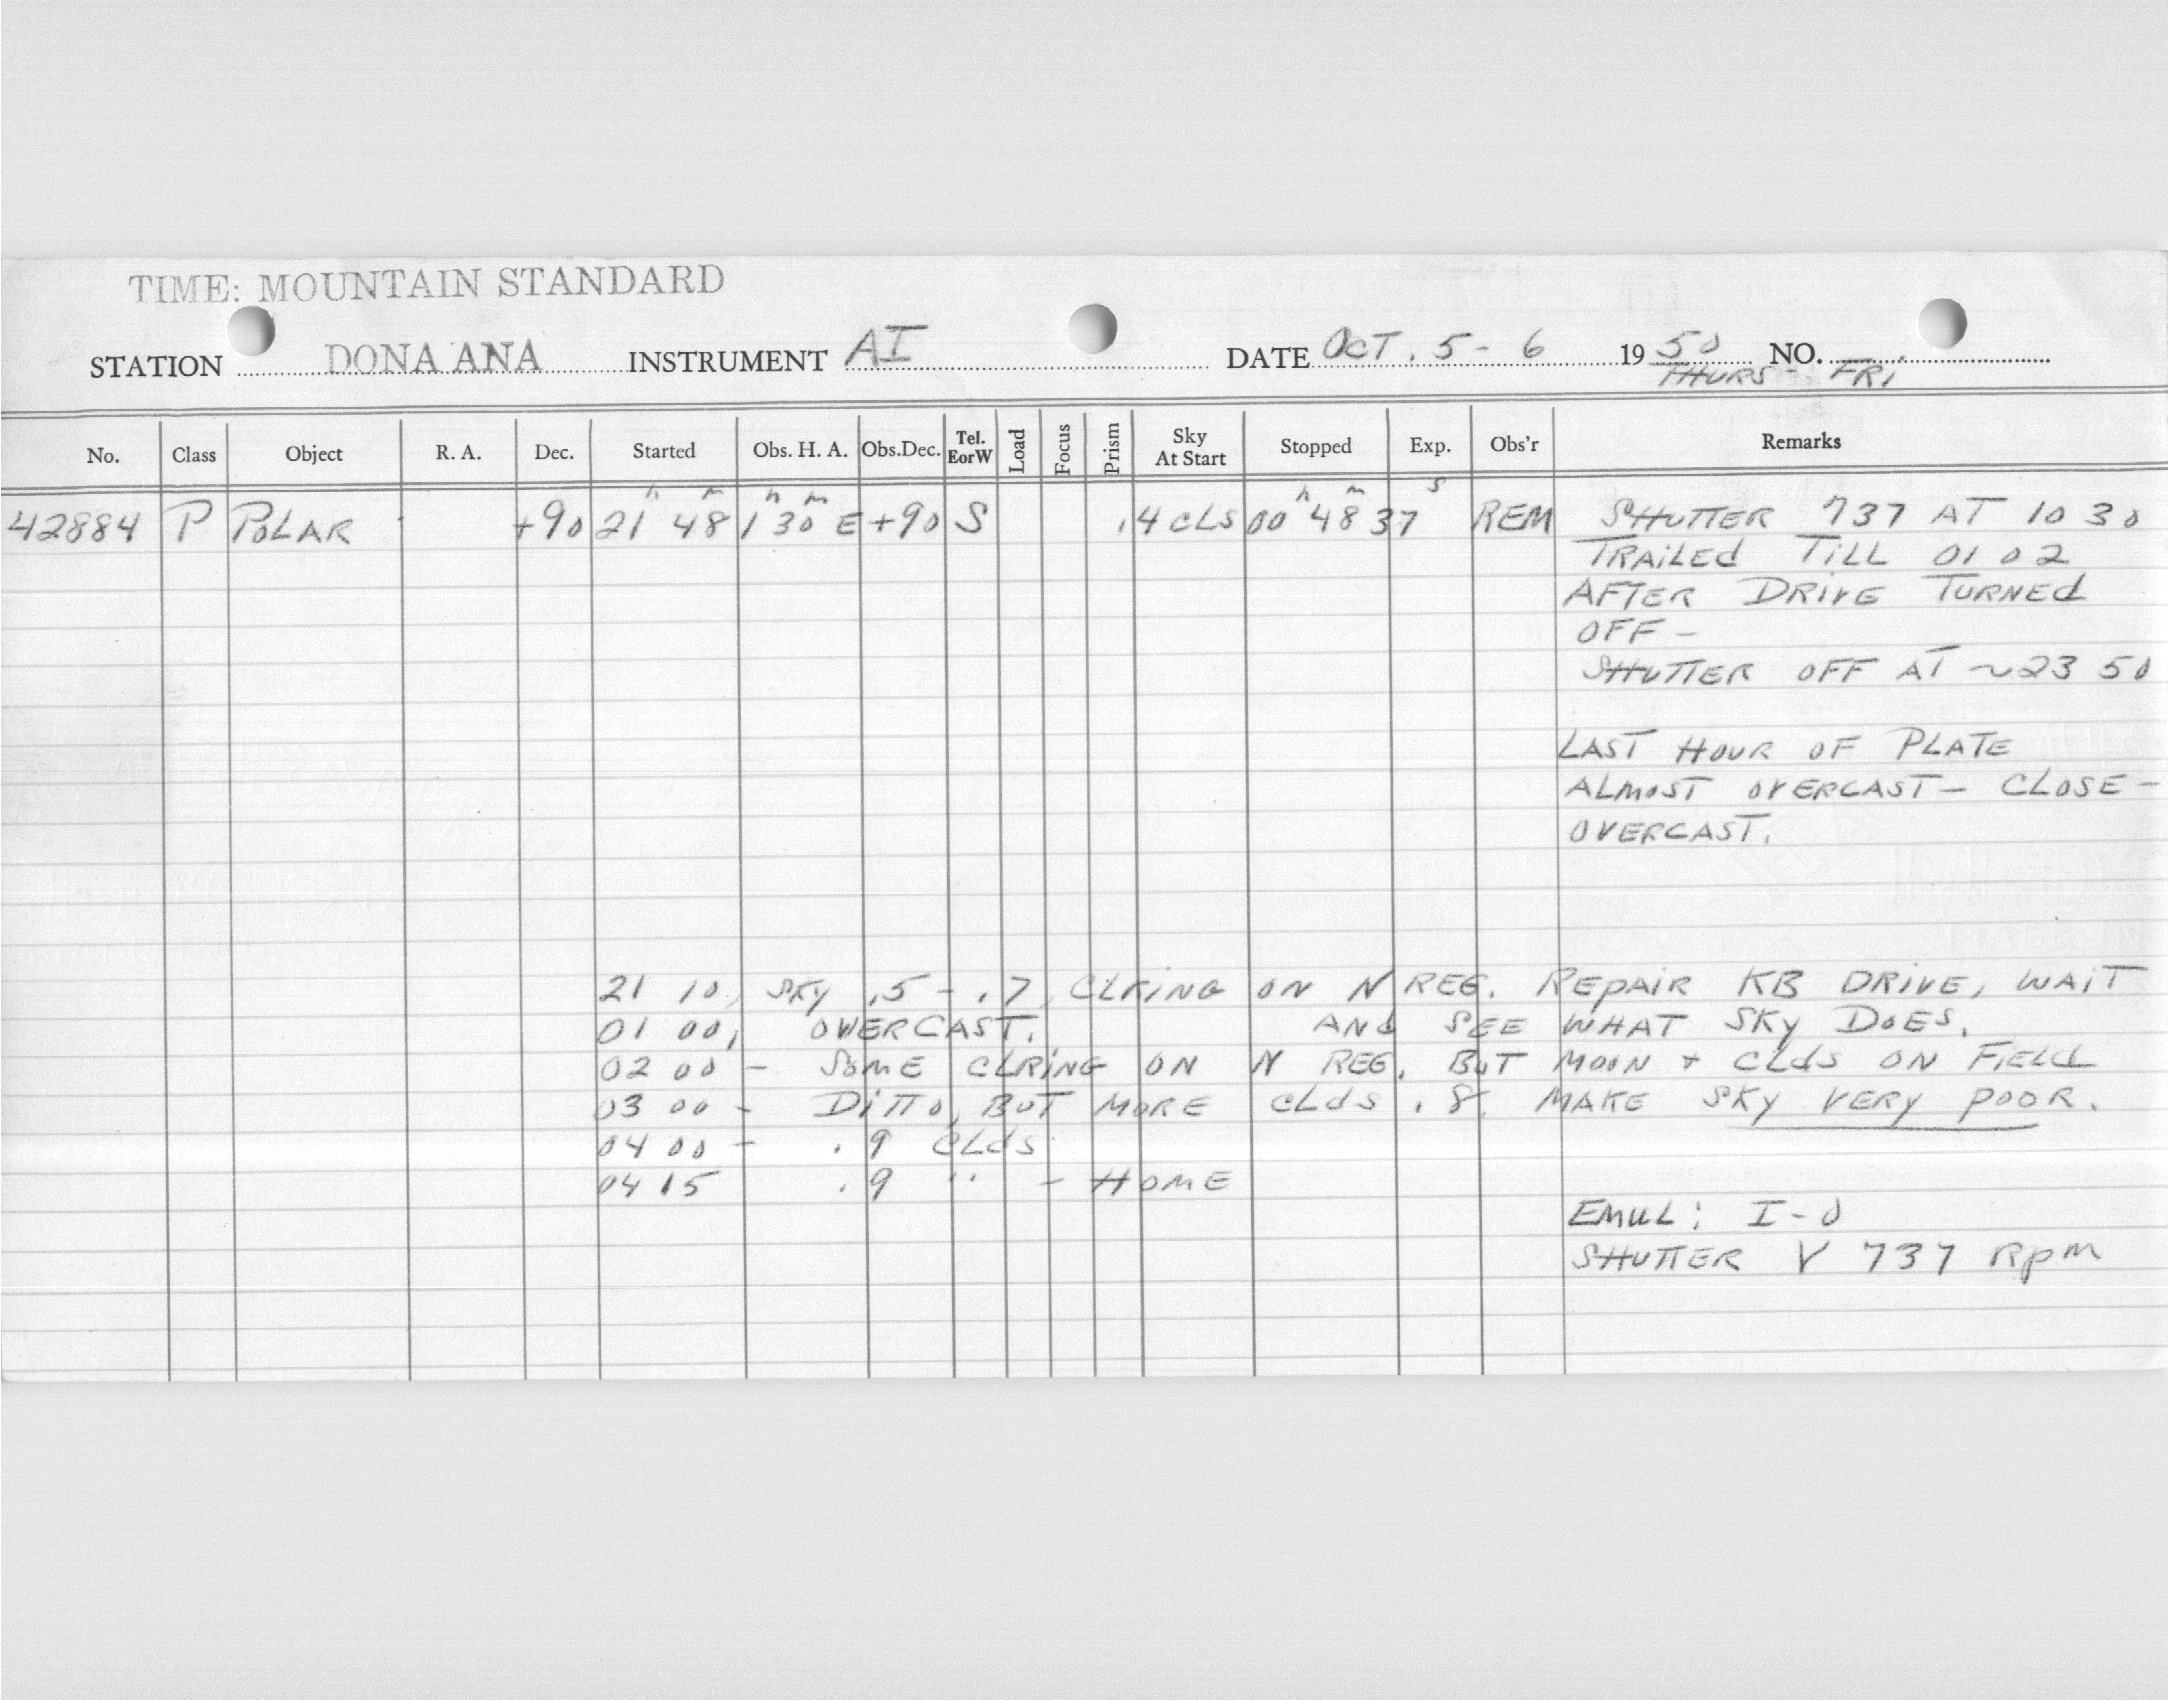 TIME: MOUNTAIN STANDARD
STATION DONA ANA INSTRUMENT AI DATE OCT. 5 - 6 1950 NO.
THURS - FRI
No. Class Object R. A. Dec. Started Obs. H. A. Obs.Dec. Tel. EorW Load Focus Prism Sky At Start Stopped Exp. Obs'r Remarks
h m h m h m s
42884 P POLAR +90 21 48 1 30 E +90 S .4 CLS 00 48 37 REM SHUTTER 737 AT 10 30
TRAILED TILL 01 02
AFTER DRIVE TURNED
OFF -
SHUTTER OFF AT ~23 50
LAST HOUR OF PLATE
ALMOST OVERCAST - CLOSE -
OVERCAST.
21 10, SKY .5 - .7, CLRING ON N REG. REPAIR KB DRIVE, WAIT
01 00, OVERCAST. AND SEE WHAT SKY DOES.
02 00 - SOME CLRING ON N REG. BUT MOON + CLDS ON FIELD
03 00 - DITTO, BUT MORE CLDS .8, MAKE SKY VERY POOR.
04 00 - .9 CLDS
04 15 .9 " - HOME
EMUL: I-O
SHUTTER V 737 RPM